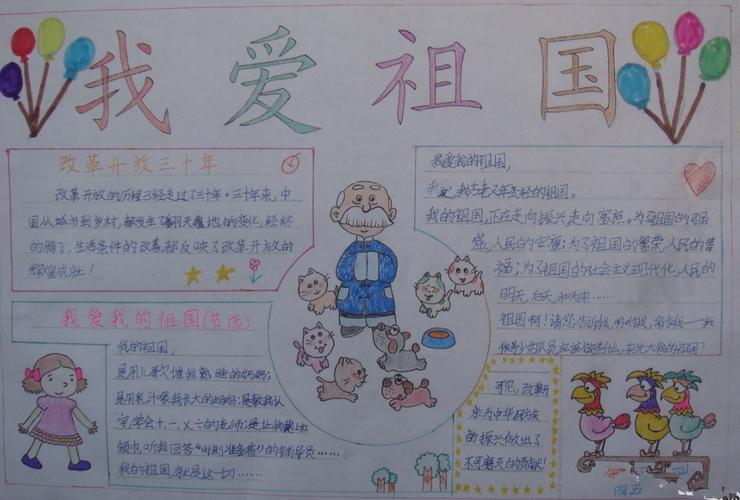 我爱祖国
改革开放三十年
改革开放的历程已经走过了三十年。三十年来,中
国从城市到乡村,都发生了翻天覆地的变化,经济
的腾飞,生活条件的改善,都反映了改革开放的
辉煌成就!
我爱我的祖国,
我的祖国,正在走向振兴走向富裕。为了祖国的强
盛,人民的富裕;为了祖国的繁荣,人民的幸
福;为了祖国的社会主义现代化,人民的
明天,后天,和未来……
祖国啊!请您告诉我,吩咐我,命令我——我
我爱我的祖国(节选)
我的祖国,
是用儿歌催我熟睡的妈妈;
是用乳汁喂我长大的妈妈;是教我认
字,学会十、一、X、÷的老师;是让我戴上红
领巾,听我回答“时刻准备着”的辅导员……
我的祖国,就是这一切……
可见,改革开
放为中华民族
的振兴作出了
不可磨灭的贡献!
四五